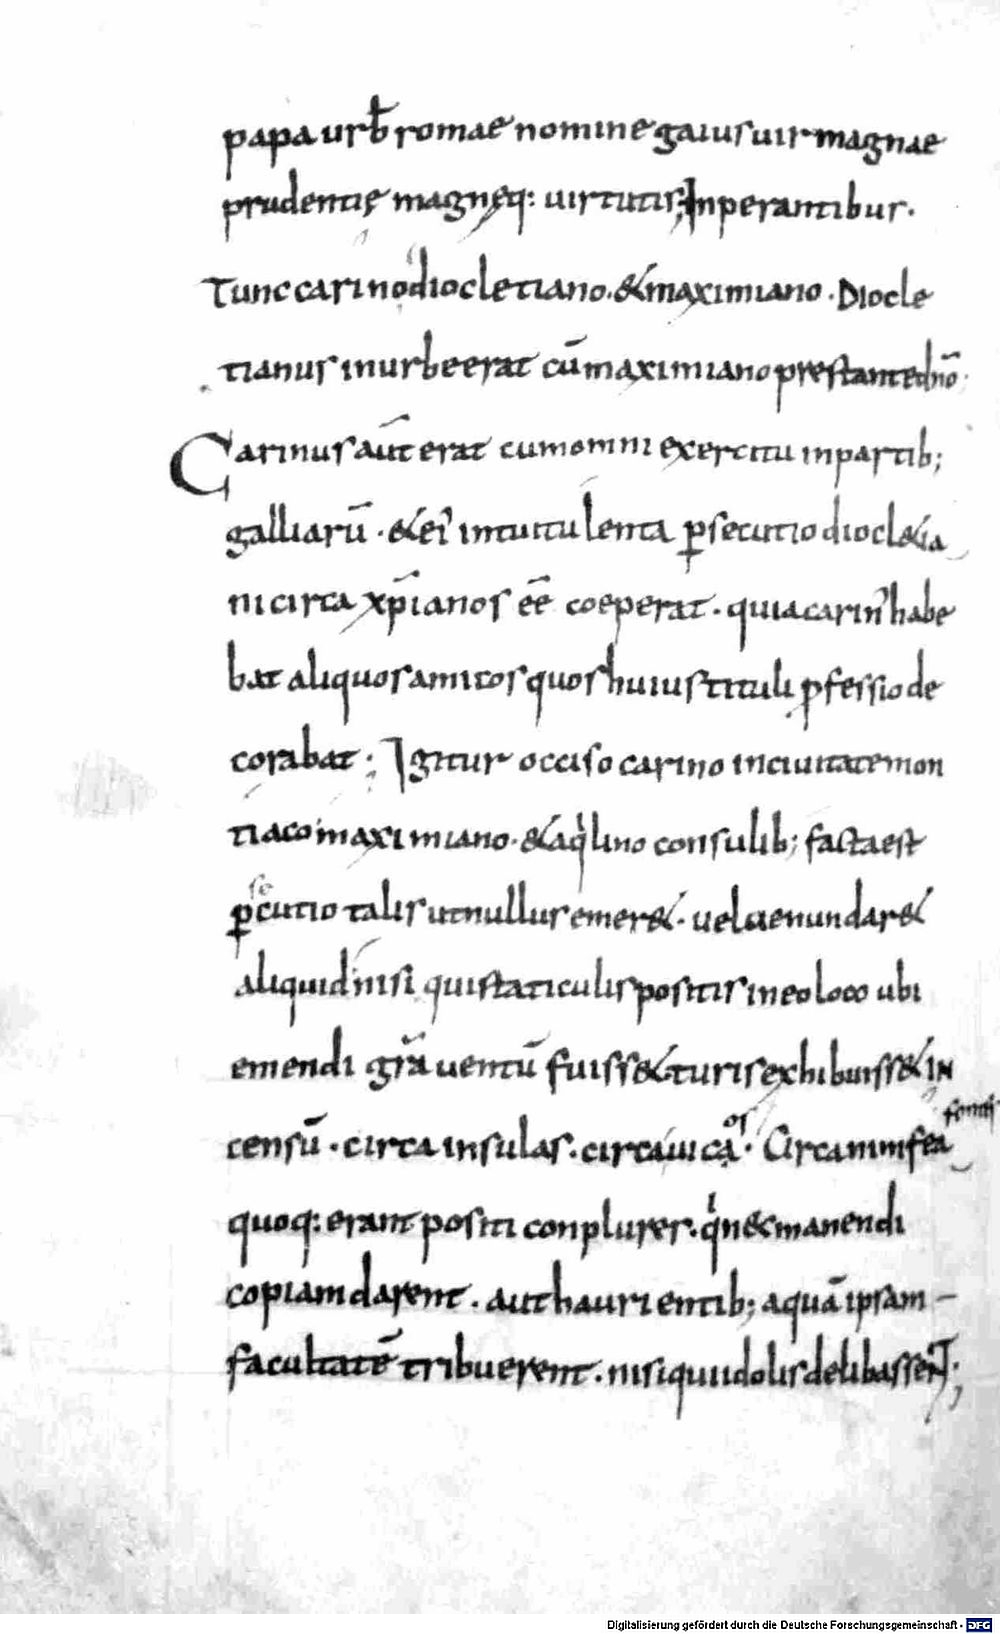 papa urb̄ romae nomine gaius uir magnae
prudentię magnęq: uirtutis; Inperantibus.
Tunc carino diocletiano. & maximiano. Diocle
tianus in urbe erat cū maximiano prestante dn̄o.
Carinus aūt erat cum omni exercitu in partib;
galliarū. & ei' intuitu lenta ꝑsecutio diocl&ia
ni circa xp̄ianos eē̄ coeperat. quia carin' habe
bat aliquos amicos quos huius tituli ꝓfessio de
corabat; Igitur occiso carino in ciuitate mon
tiaco maximiano. & aqⁱlino consulib; facta est
ꝑsecutio talis ut nullus emer&. uel uenundar&
aliquid nisi qui staticulis positis in eo loco ubi
emendi gr̄a uentū fuiss& turis exhibuiss& in
censū. circa insulas. circa uicos. Circa nimfea
quoq: erant positi conplures. qⁱ nec manendi
copiam darent. aut haurientib; aquā ipsam
facultatē tribuerent. nisi qui idolis delibassent;
Digitalisierung gefördert durch die Deutsche Forschungsgemeinschaft - DFG